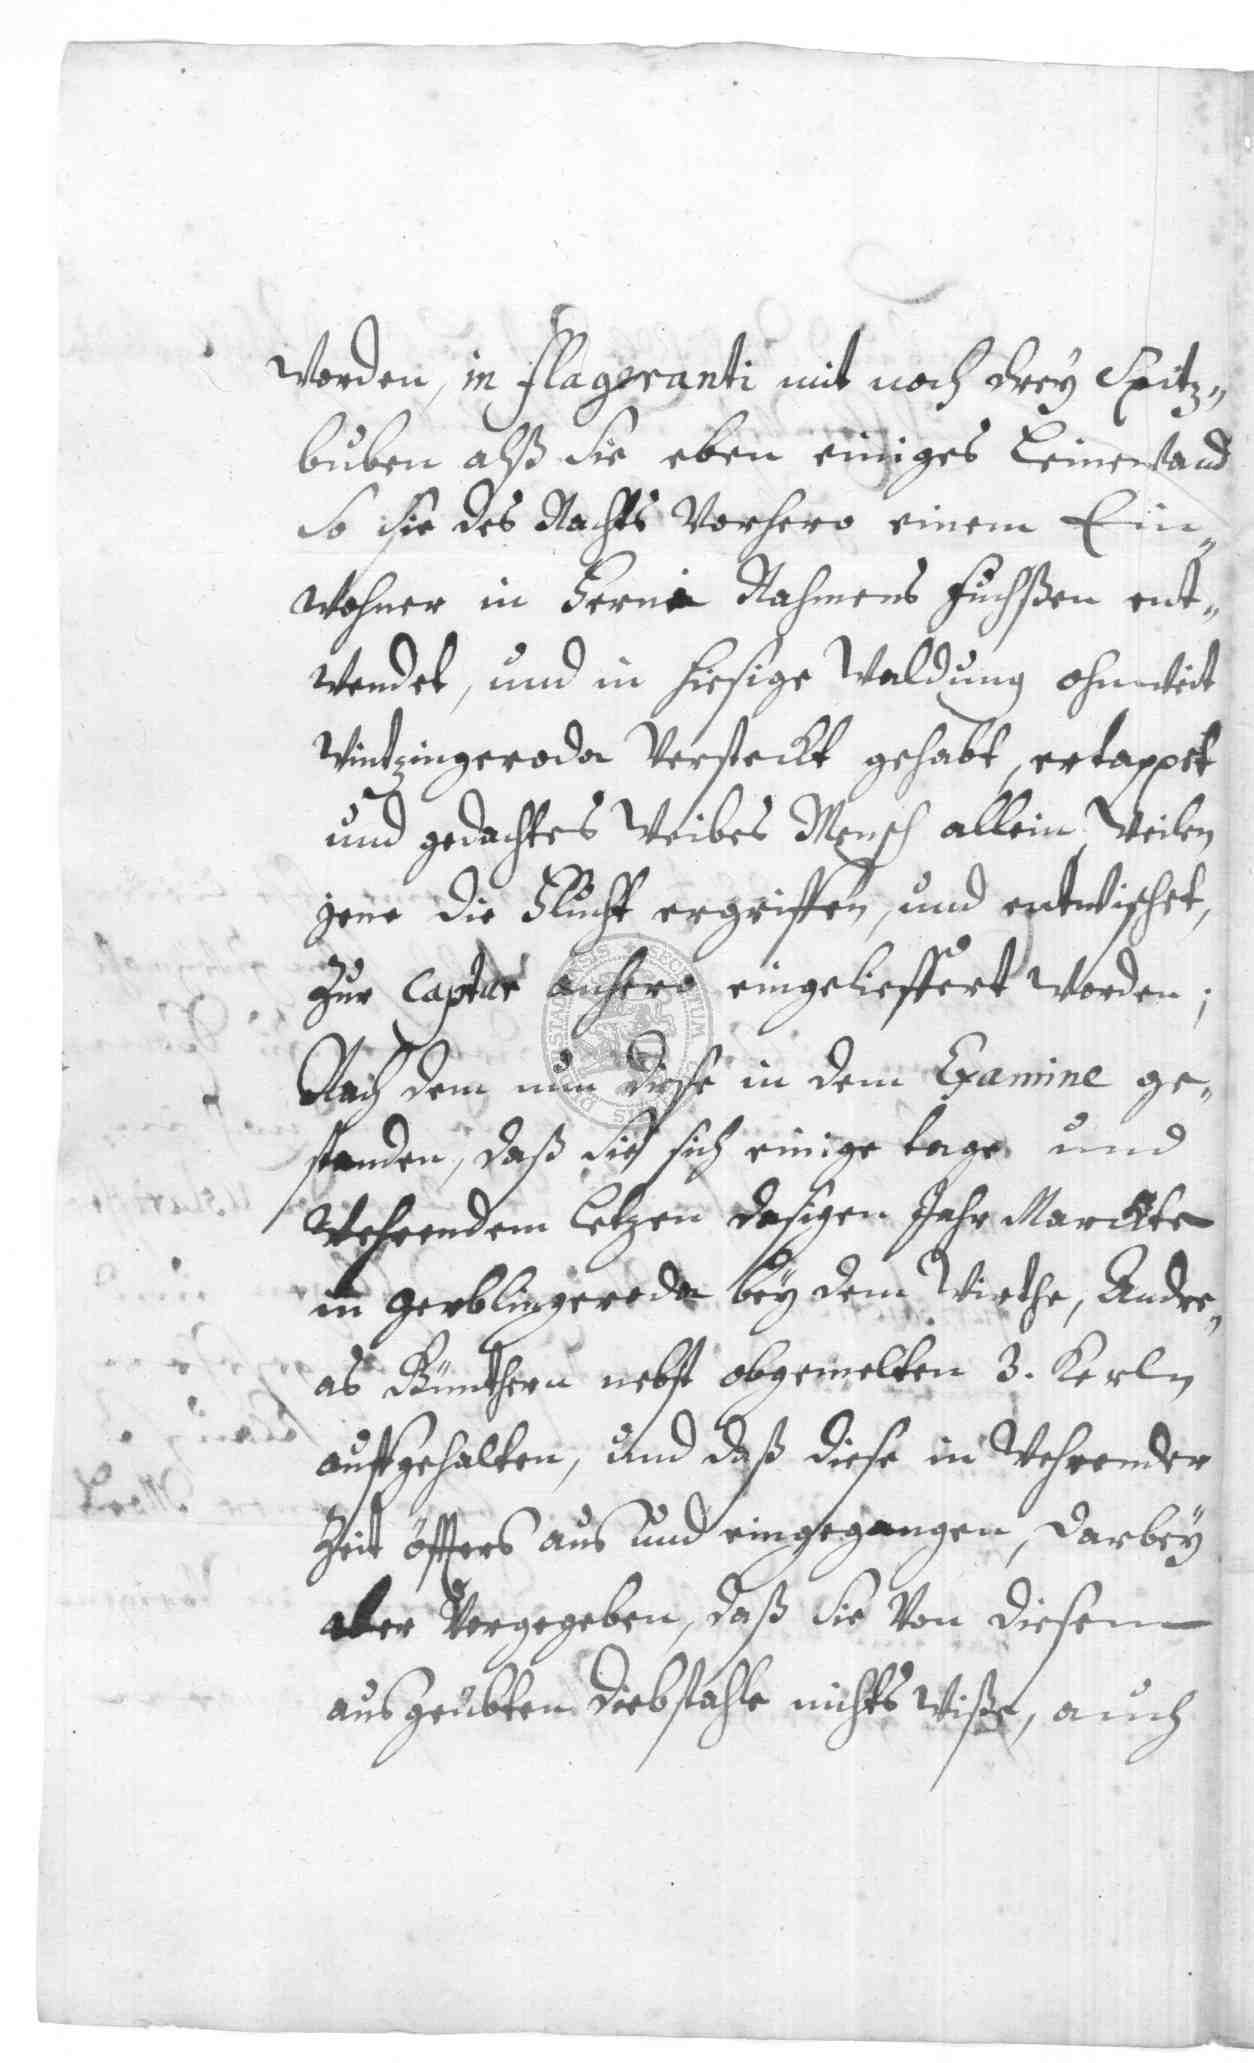 worden, in flagranti mit noch drey Spitz„
buben alß sie eben einiges Leinewand
so sie des Nachts vorhero einem Ein„
wohner in Berna Nahmens Fuchßen ent„
wendet, und in hiesige Waldung ohnweit
Wintzingeroda versteckt gehabt, ertappet
und gedachtes Weibes Mensch allein, weilen
jene die Flucht ergriffen, und entwischet,
zur Captur anhero eingelieffert worden;
Nach dem nun diese in dem Examine ge„
standen, daß sie sich einige tage und
wehrendem letzen dasigen Jahr Marckte
in Gerblingeroda bey dem Wirthe, Andre„
as Günthern nebst obgemelten 3. Kerln
auffgehalten, und daß diese in wehrender
Zeit öffters aus und eingegangen, darbey
aber vorgegeben, daß sie von diesem
ausgeübten Diebstahle nichts wiße, auch